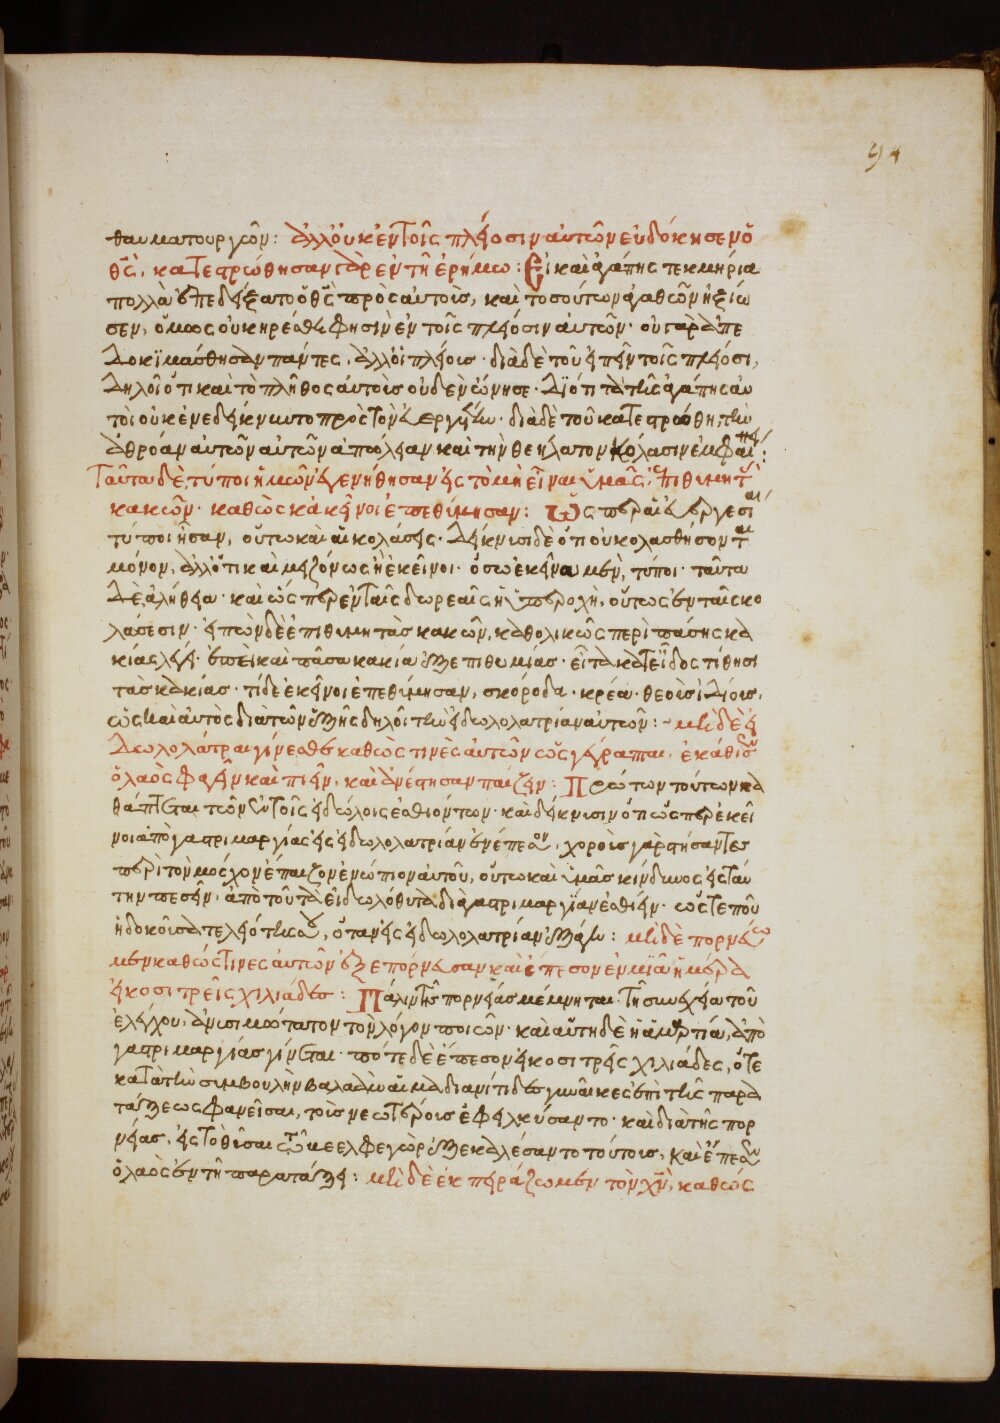 94
θαυματουργῶν: ἀλλ' οὐκ ἐν τοῖς πλείοσιν αὐτῶν εὐδόκησεν ὁ
θς̅, κατεστρώθησαν γὰρ ἐν τῇ ἐρήμω: Εἰ καὶ ἀγάπης τεκμήρια
πολλὰ ἐπεδείξατο ὁ θς̅ πρὸς αὐτοὺς, καὶ τοσούτων ἀγαθῶν ἠξίω
σεν, ὅμως οὐκ ηρέσθη φησὶν ἐν τοῖς πλείοσιν αὐτῶν· οὐ γὰρ ἀπε
δοκϊμάσθησαν πάντες, ἀλλ' οἱ πλείους· διὰ δὲ τοῦ εἰπεῖν τοῖς πλείοσι,
δηλοῖ ὅτι καὶ τὸ πλῆθος αὐτοὺς οὐδὲν ὤνησε· διότι τὰ τῆς ἀγάπης αὐ
τοὶ οὐκ ἐνεδείκνυντο πρὸς τὸν εὐεργέτην· διὰ δὲ τοῦ κατεστρώθη, τὴν
ἀθρόαν αὐτῶν αὐτῶν ἀπώλειαν καὶ τὴν θεήλατον κόλασιν ἐμφαίνει:
Ταῦτα δὲ, τύποι ἡμῶν ἐγενήθησαν εἰς τὸ μὴ εἶναι ὑμᾶς, ἐπιθυμητὰς
κακῶν· καθὼς κἀκεῖνοι ἐπεθύμησαν: Ὥσπερ αἱ εὐεργεσίαι
τύποι ἦσαν, οὕτω καὶ αἱ κολάσεις· δείκνυσι δὲ ὅτι οὐ κολασθήσονται
μόνον, ἀλλ' ὅτι καὶ μειζόνως ἢ ἐκεῖνοι· ὅσω ἐκεῖνα μὲν, τύποι· ταῦτα
δὲ ἀλήθεια· καὶ ὥσπερ ἐν ταῖς δωρεαῖς ἡ ὑπεροχὴ, οὕτως ἐν ταῖς κο
λάσεσιν· εἰπὼν δὲ ἐπιθυμητὰς κακῶν, καθολικῶς περὶ πάσης κα
κίας λέγει· ἐπεὶ καὶ πᾶσα κακία ἐξ ἐπιθυμίας· εἶτα κατ' εἶδος τίθησι
τὰς κακίας· τί δὲ ἐκεῖνοι ἐπεθύμησαν, σκόροδα· κρέα· θεοὺς ἰδίους,
ὡς καὶ αὐτὸς διὰ τῶν ἑξῆς δηλοῖ τὴν εἰδωλολατρίαν αὐτῶν: ~ μὴ δὲ εἰ
δωλολάτραι γίνεσθε καθὼς τινὲς αὐτῶν ὡς γέγραπται, ἐκάθισεν
ὁ λαὸς φαγεῖν καὶ πιεῖν, καὶ ἀνέστησαν παίζειν: Πρῶτον τούτων κα
θάπτεται τῶν ἐν τοῖς εἰδώλοις ἐσθιόντων· καὶ δείκνυσιν ὅτι ὥσπερ ἐκεῖ
νοι ἀπὸ γαστριμαργίας εἰς εἰδωλολατρίαν ἐνέπεσον, χοροὺς γὰρ στήσαντες
περὶ τὸν μόσχον ἔπαιζον ἐνώπιον αὐτοῦ, οὕτω καὶ ὑμᾶς κίνδυνος εἰς ταύ
την πεσεῖν, ἀπὸ τοῦ τὰ εἰδωλόθυτα διὰ γαστριμαργίαν ἐσθίειν· ὥστε ποῦ
ἡ δοκοῦσα τελειότης , ὅταν εἰς εἰδωλολατρίαν ἐξάγη: μὴ δὲ πορνεύω
μεν καθώς τινες αὐτῶν ἐξεπόρνευσαν καὶ ἔπεσον ἐν μιᾷ ἡμέρα
εἴκοσι τρεῖς χιλιάδες: Πάλιν τῆς πορνείας μέμνηται· τῇ συνεχεία τοῦ
ἐλέγχου, ἀνυσιμώτατον τὸν λόγον ποιῶν· καὶ αὕτη δὲ ἡ ἁμαρτία, ἀπὸ
γαστριμαργίας γίνεται· πότε δὲ ἔπεσον εἴκοσι τρεῖς χιλιάδες, ὅτε
κατὰ τὴν συμβουλὴν βαλαὰμ αἱ μαδιανίτιδες γυναῖκες ἐπὶ τῆς παρα
τάξεως φανεῖσαι, τοὺς νεωτέρους ἐφειλκύσαντο· καὶ διὰ τῆς πορ
νείας, εἰς τὸ θῦσαι τῶ βεελφεγὼρ ἐξεκαλέσαντο τούτοις, καὶ ἔπεσεν
ὁ λαὸς ἐν τῇ παρατάξει: μὴ δὲ ἐκπειράζωμεν τὸν χν̅, καθὼς